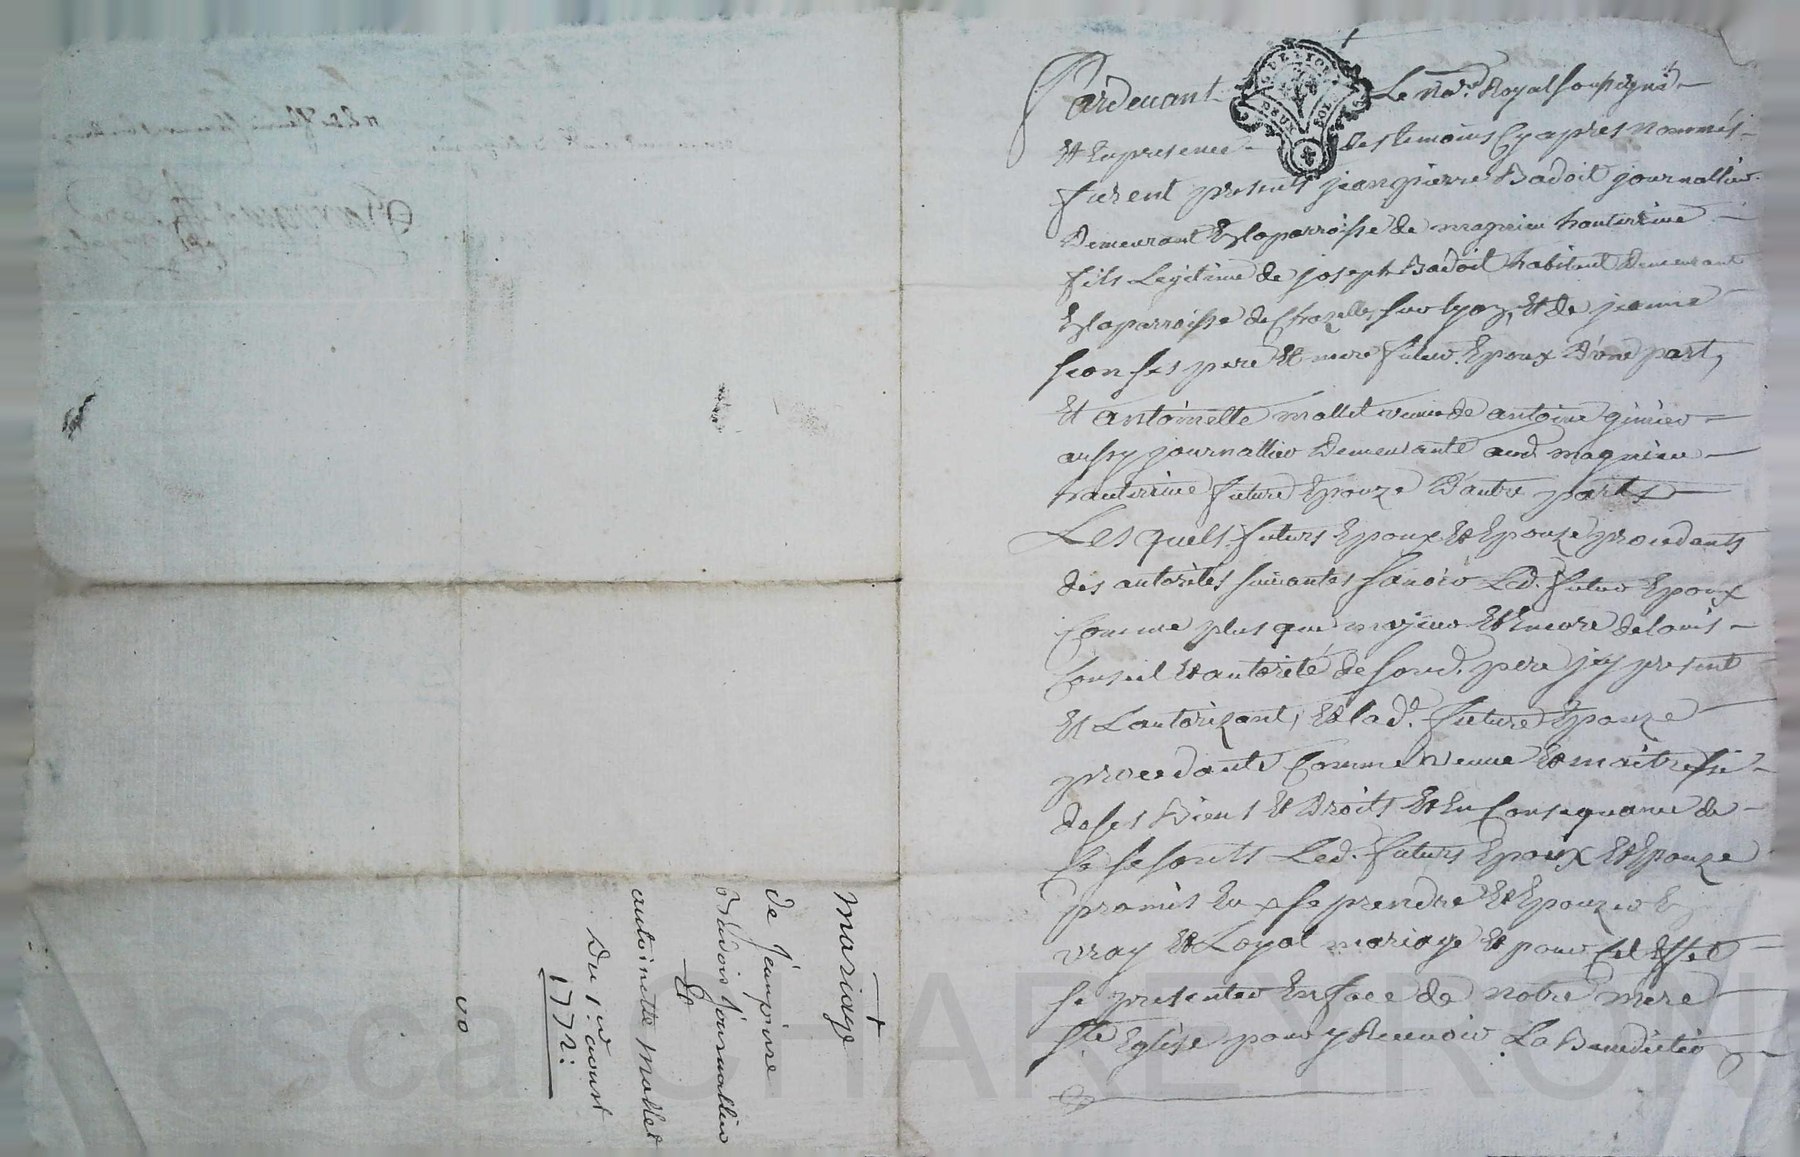 Pardevant Le no.re Royal soussigné
Et En presence des temoins Cy apres nommés
furent presents jean pierre Badoit journallier
Demeurant En la parroisse de magnieu hauterive
fils Legitime de joseph Badoit habitant Demeurant
En la parroisse de Chazelles sur lyon, Et de jeanne
ses pere Et mere futur Epoux D'une part,
Et antoinette mollet veuve de antoine
aussy journallier Demeurante aud. magnieu
hauterive future Epouze D'autre part
Les quels futurs Epoux Et Epouze procedants
des autorités suivantes sçavoir Led. futur Epoux
Comme plus que majeur Et Encore de l'avis
Conseil Et autorité de sond. pere jcy present
Et L'autorizant, Et lad.e future Epouze
procedante Comme veuve Et maitresse
de ses Biens Et Droits Et En Consequance de
Ce se sonts Led. futurs Epoux Et Epouze
promis Eux se prendre Et Epouzer En
vray Et Loyal mariage Et pour Cet Effet
se presenter En face de notre mere
Ste Eglise pour y Recevoir La Benediction
DEUX SOLS
mariage
de Jean pierre
Badoit Journallier
Et
antoinette mollet
Du 1er aoust
1772:
CHAREYRON